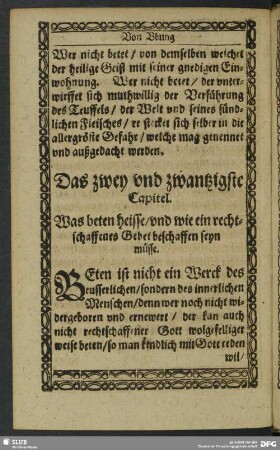 Von Vbung
Wer nicht betet / von demselben weichet
der heilige Geist mit seiner gnedigen Ein-
wohnung. Wer nicht betet / der vnter-
wirffet sich muthwillig der Verführung
des Teuffels / der Welt vnd seines sünd-
lichen Fleisches / er stecket sich selber in die
allergröste Gefahr / welche mag genennet
vnd außgedacht werden.
Das zwey vnd zwantzigste
Capitel.
Was beten heisse / vnd wie ein recht-
schaffenes Gebet beschaffen seyn
müsse.
BEten ist nicht ein Werck des
eusserlichen / sondern des innerlichen
Menschen / denn wer noch nicht wi-
dergeboren vnd ernewert / der kan auch
nicht rechtschaffener Gott wolgefelliger
weise beten / so man kindlich mit Gott reden
wil /
SLUB
DFG